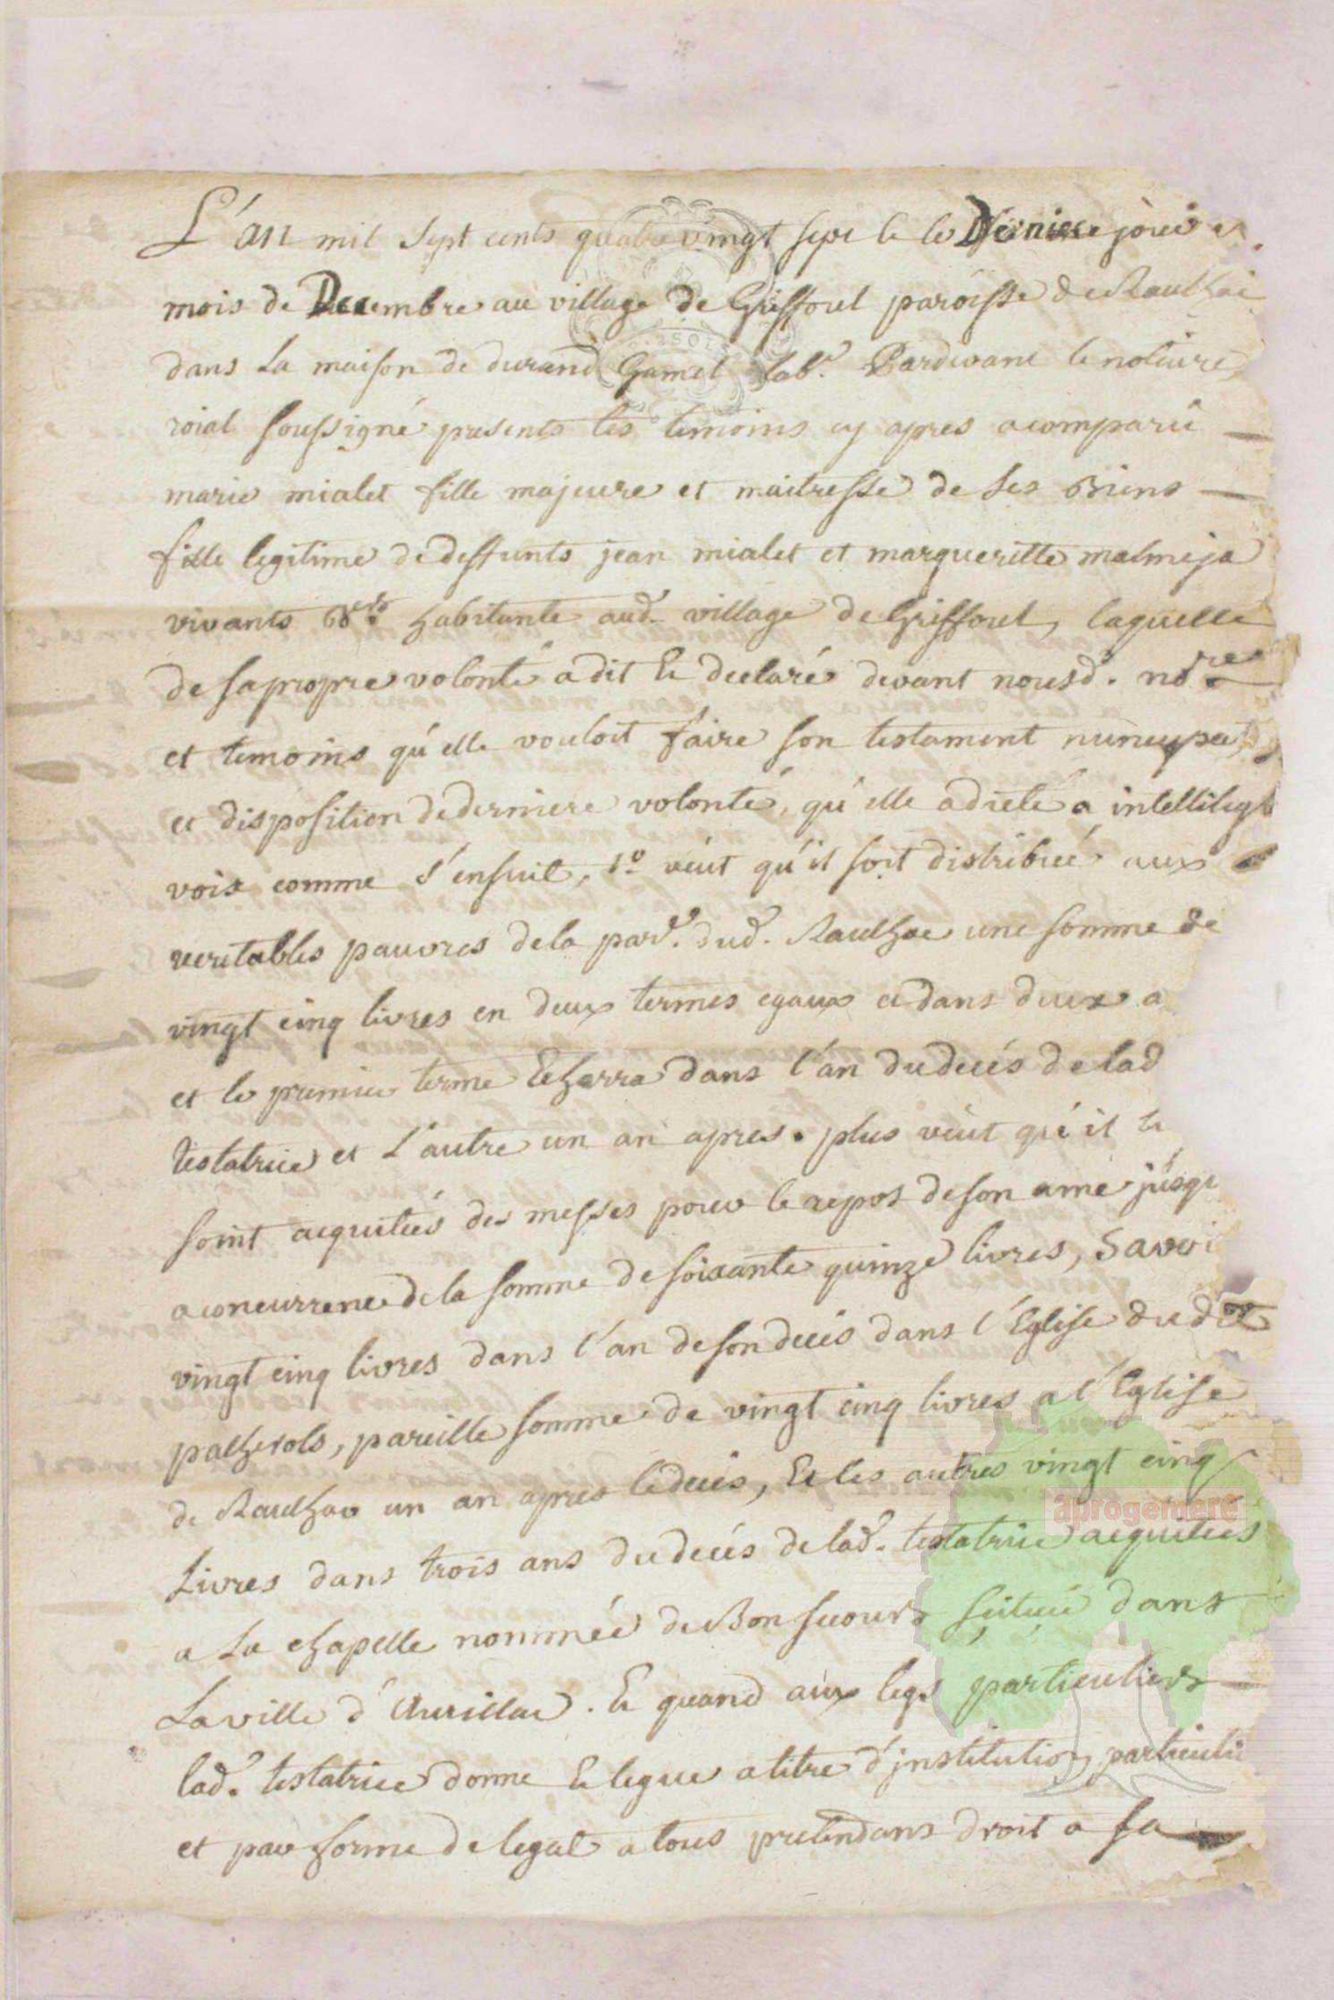 L'an mil sept cents quatre vingt sept & le Dernier jour
mois de Decembre au village de Griffoul paroisse de Raulhac
dans la maison de durand Gamel lab.r Pardevant le notaire
roial soussigné presents les temoins cy apres a comparu
marie mialet fille majeure et maitresse de ses Biens
fille legitime de deffunts jean mialet et margueritte malmeja
vivants habitante aud. village de Griffoul, laquelle
de sa propre volonté a dit & declaré devant nousd. nore
et temoins qu'elle vouloit faire son testament nuncupa
et disposition de derniere volonté, qu'elle a dicté a intelligi
voix comme s'ensuit, 1º veut qu'il soit distribué aux
veritables pauvres de la par.e dud. Raulhac une somme de
vingt cinq livres en deux termes egaux et dans deux a
et le premier terme Echerra dans l'an du decés de lad
testatrice et l'autre un an apres. plus veut qu'il
soint acquitées des messes pour le repos de son ame jusqu
a concurrence de la somme de soixante quinze livres, Savoi
vingt cinq livres dans l'an de son decés dans l'Eglise dudit
palherols, pareille somme de vingt cinq livres a l'Eglise
de Raulhac un an apres le decés, & les autres vingt cinq
Livres dans trois ans du decés de lad. testatrice acquitées
a La chapelle nommée de Bon secours scituée dans
La ville d'Aurillac. & quand aux legs particuliers
lad.e testatrice donne & legue a titre d'institution particuli
et par forme de legat a tous pretendans droit a sa
aprogemere